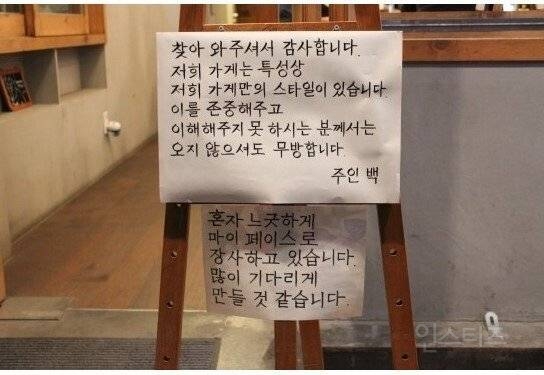 찾아 와주셔서 감사합니다.
저희 가게는 특성상
저희 가게만의 스타일이 있습니다.
이를 존중해주고
이해해주지 못 하시는 분께서는
오지 않으셔도 무방합니다.
주인 백
혼자 느긋하게
마이 페이스로
장사하고 있습니다.
많이 기다리게
만들 것 같습니다.
인스티즈